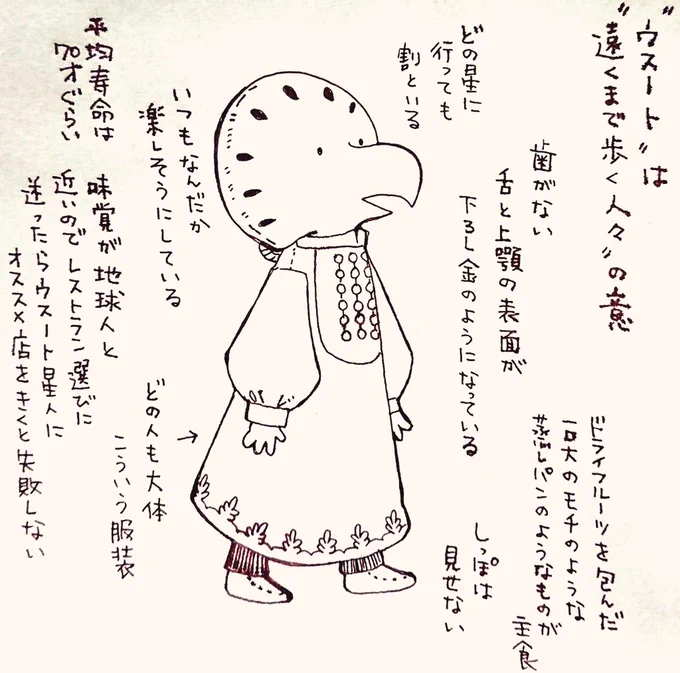 "ウスート"は
"遠くまで歩く人々"の意
どの星に
行っても
割といる
歯がない
舌と上顎の表面が
下ろし金のようになっている
ドライフルーツを包んだ
一口大のモチのような
蒸しパンのようなものが
主食
しっぽは
見せない
いつもなんだか
楽しそうにしている
平均寿命は
70才ぐらい
味覚が地球人と
近いのでレストラン選びに
迷ったらウスート星人に
オススメ店をきくと失敗しない
どの人も大体
こういう服装